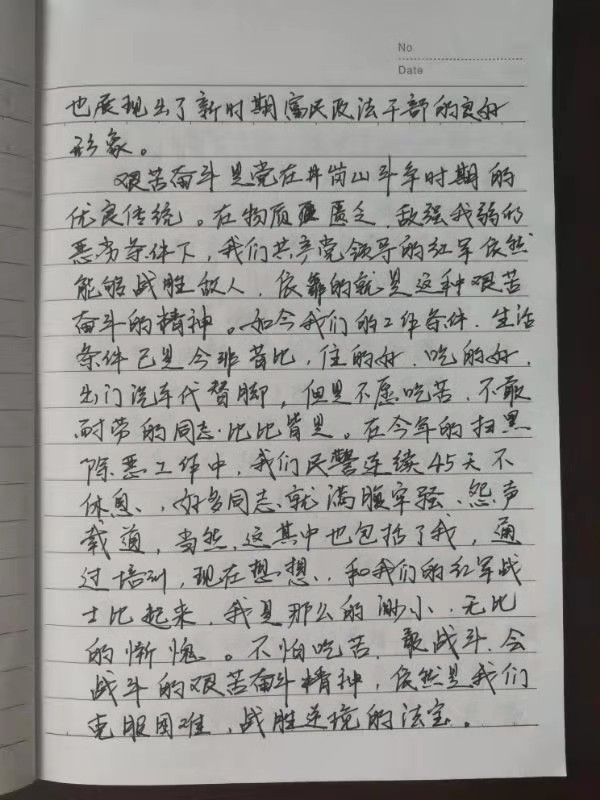 No
Date
也展现出了新时期富民政法干部的良好
形象。
艰苦奋斗是党在井岗山斗争时期的
优良传统。在物质匮乏、敌强我弱的
恶劣条件下,我们共产党领导的红军依然
能够战胜敌人,依靠的就是这种艰苦
奋斗的精神。如今我们的工作条件、生活
条件已是今非昔比,住的好、吃的好,
出门汽车代替脚,但是不愿吃苦、不敢
耐劳的同志比比皆是。在今年的扫黑
除恶工作中,我们民警连续45天不
休息、好多同志就满腹牢骚、怨声
载道,当然,这其中也包括了我,通
过培训,现在想想、和我们的红军战
士比起来,我是那么的渺小、无比
的惭愧。不怕吃苦、敢战斗、会
战斗的艰苦奋斗精神,依然是我们
克服困难、战胜逆境的法宝。